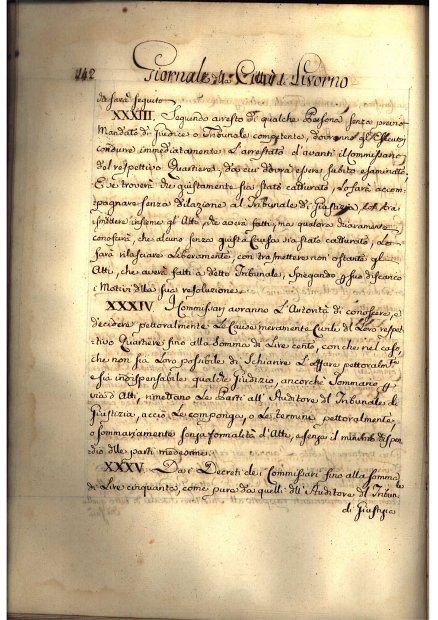 142 Giornale della Città di Livorno
sarà seguito
XXXIII. Seguendo arresto di qualche Persona senza previo
Mandato di Giudice o Tribunale competente, dovranno gl'Esecutori
condurre immediatamente L'arrestato d'avanti il Commissario
del respettivo Quartiere, da cui dovrà essere subito esaminato
E se troverà che giustamente sia stato catturato, lo farà accom-
pagnare senza dilazione al Tribunale di Giustizia, con tra-
smettere insieme gl'Atti, che averà fatti, ma qualora chiaramente
conoscerà, che alcuno senza giusta Causa sia stato catturato, Lo
farà rilasciare liberamente, con trasmettere non ostante gl'
Atti, che averà fatti a detto Tribunale, spiegando p suo discarico
i Motivi della sua resoluzione.
XXXIV. I Commissarj avranno L'Autorità di conoscere, e
decidere pettoralmente le Cause meramente Civili del Loro respet-
tivo Quartiere fino alla somma di Lire cento, con che nel caso,
che non sia Loro possibile di schiarire L'affare pettoralmte
e sia indispensabile qualche Giudizio, ancorche sommario p
via d'Atti, rimettano le Parti all'Auditore del Tribunale di
Giustizia, acciò le componga, o le termini pettoralmente,
o sommariamente senza formalità d'Atti, e senza il minimo dispen-
dio delle parti medesime.
XXXV. Dai Decreti dei Commissarj fino alla somma
di Lire cinquanta, come pure da quelli dell'Auditore del Tribunle
di Giustizia